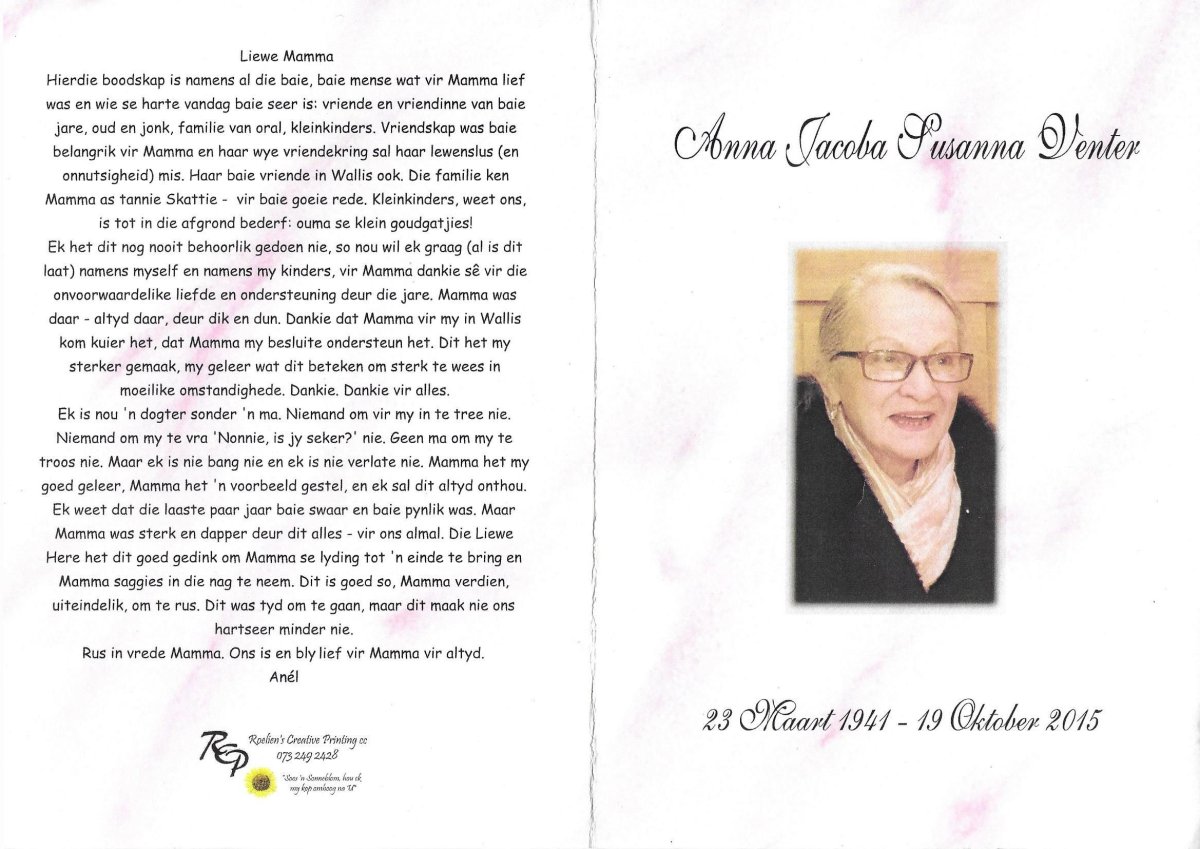 Liewe Mamma
Hierdie boodskap is namens al die baie, baie mense wat vir Mamma lief
was en wie se harte vandag baie seer is: vriende en vriendinne van baie
jare, oud en jonk, familie van oral, kleinkinders. Vriendskap was baie
belangrik vir Mamma en haar wye vriendekring sal haar lewenslus (en
onnutsigheid) mis. Haar baie vriende in Wallis ook. Die familie ken
Mamma as tannie Skattie - vir baie goeie rede. Kleinkinders, weet ons,
is tot in die afgrond bederf: ouma se klein goudgatjies!
Ek het dit nog nooit behoorlik gedoen nie, so nou wil ek graag (al is dit
laat) namens myself en namens my kinders, vir Mamma dankie sê vir die
onvoorwaardelike liefde en ondersteuning deur die jare. Mamma was
daar - altyd daar, deur dik en dun. Dankie dat Mamma vir my in Wallis
kom kuier het, dat Mamma my besluite ondersteun het. Dit het my
sterker gemaak, my geleer wat dit beteken om sterk te wees in
moeilike omstandighede. Dankie. Dankie vir alles.
Ek is nou 'n dogter sonder 'n ma. Niemand om vir my in te tree nie.
Niemand om my te vra 'Nonnie, is jy seker?' nie. Geen ma om my te
troos nie. Maar ek is nie bang nie en ek is nie verlate nie. Mamma het my
goed geleer, Mamma het 'n voorbeeld gestel, en ek sal dit altyd onthou.
Ek weet dat die laaste paar jaar baie swaar en baie pynlik was. Maar
Mamma was sterk en dapper deur dit alles - vir ons almal. Die Liewe
Here het dit goed gedink om Mamma se lyding tot 'n einde te bring en
Mamma saggies in die nag te neem. Dit is goed so, Mamma verdien,
uiteindelik, om te rus. Dit was tyd om te gaan, maar dit maak nie ons
hartseer minder nie.
Rus in vrede Mamma. Ons is en bly lief vir Mamma vir altyd.
Anél
RCP
Roelien's Creative Printing cc
073 249 2428
"Soos 'n Sonneblom, hou ek
my kop omhoog na U"
Anna Jacoba Susanna Venter
23 Maart 1941 - 19 Oktober 2015